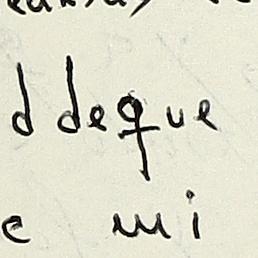 d deque
c mi